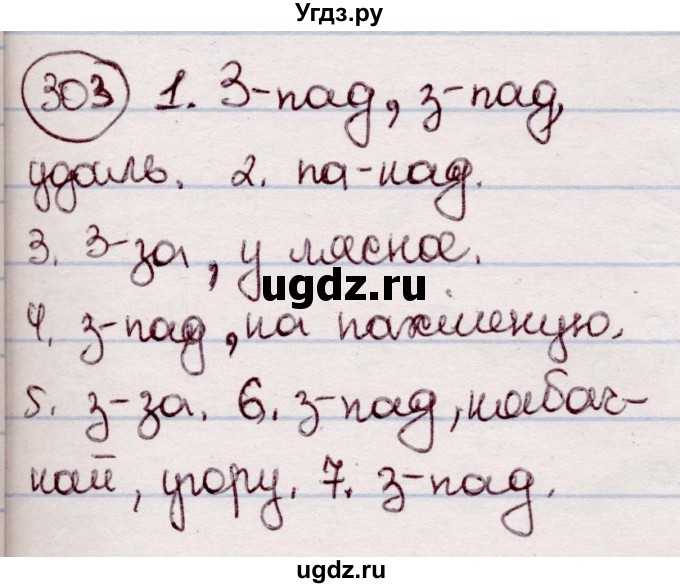 Угдз.ру
303 1. З-пад, з-пад,
удаль. 2. па-над.
3. З-за, у лясное.
ugdz.ru
4. з-пад, на пахіленую.
5. з-за. 6. з-пад, набач-
най, угору. 7. з-пад.
ugdz.ru